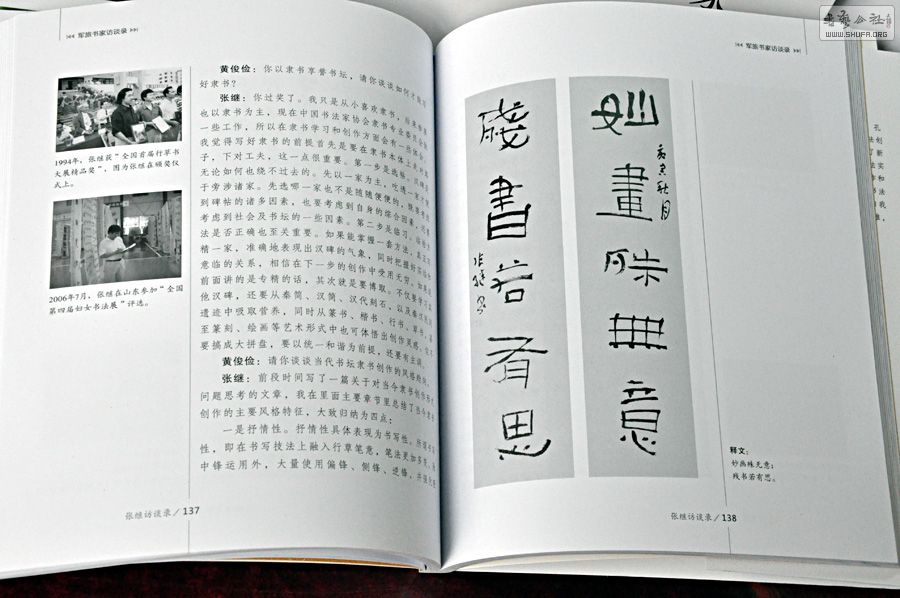 军旅书家访谈录
1994年，张继获“全国首届行草书
大展精品奖”，图为张继在颁奖仪
式上。
2006年7月，张继在山东参加“全国
第四届妇女书法展”评选。
黄俊俭：你以隶书享誉书坛，请你谈谈如何才能写
好隶书？
张继：你过奖了。我只是从小喜欢隶书，后来
也以隶书为主，现在中国书法家协会隶书专业委员会做
一些工作，所以在隶书学习和创作方面会有一些
我觉得写好隶书的前提首先是要在隶书本体上
子，下对工夫，这一点很重要。第一步是选帖
无论如何也绕不过去的。先以一家为主，吃透一家
于旁涉诸家。先选哪一家也不是随随便便的，既要考虑
到碑帖的诸多因素，也要考虑到自身的综合因素，还要
考虑到社会及书坛的一些因素。第二步是临习。临帖方
法是否正确也至关重要。如果能掌握一套方法，真正
精一家，准确地表现出汉碑的气象，同时把握好
意临的关系，相信在下一步的创作中受用无穷。如果
前面讲的是专精的话，其次就是要博取。不仅要学习其
他汉碑，还要从秦简、汉简、汉代刻石、以及秦汉
遗迹中吸取营养，同时从篆书、楷书、行书、草书，甚
至篆刻、绘画等艺术形式中也可体悟出创作风格。但不
要搞成大拼盘，要以统一和谐为前提，还要有主调。
黄俊俭：请你谈谈当代书坛隶书创作的风格趋向。
张继：前段时间写了一篇关于对当今隶书创作
问题思考的文章，我在里面主要章节里总结了当今隶书
创作的主要风格特征，大致归纳为四点：
一是抒情性。抒情性具体表现为书写性。所谓书写
性，即在书写技法上融入行草笔意，笔法更加多变，除
中锋运用外，大量使用偏锋、侧锋、逆锋，并强化
张继访谈录／137
军旅书家访谈录
妙畫殊無意
殘書若有思
张继
释文：
妙画殊无意；
残书若有思。
张继访谈录／138
书法公社
WWW.SHUFA.ORG